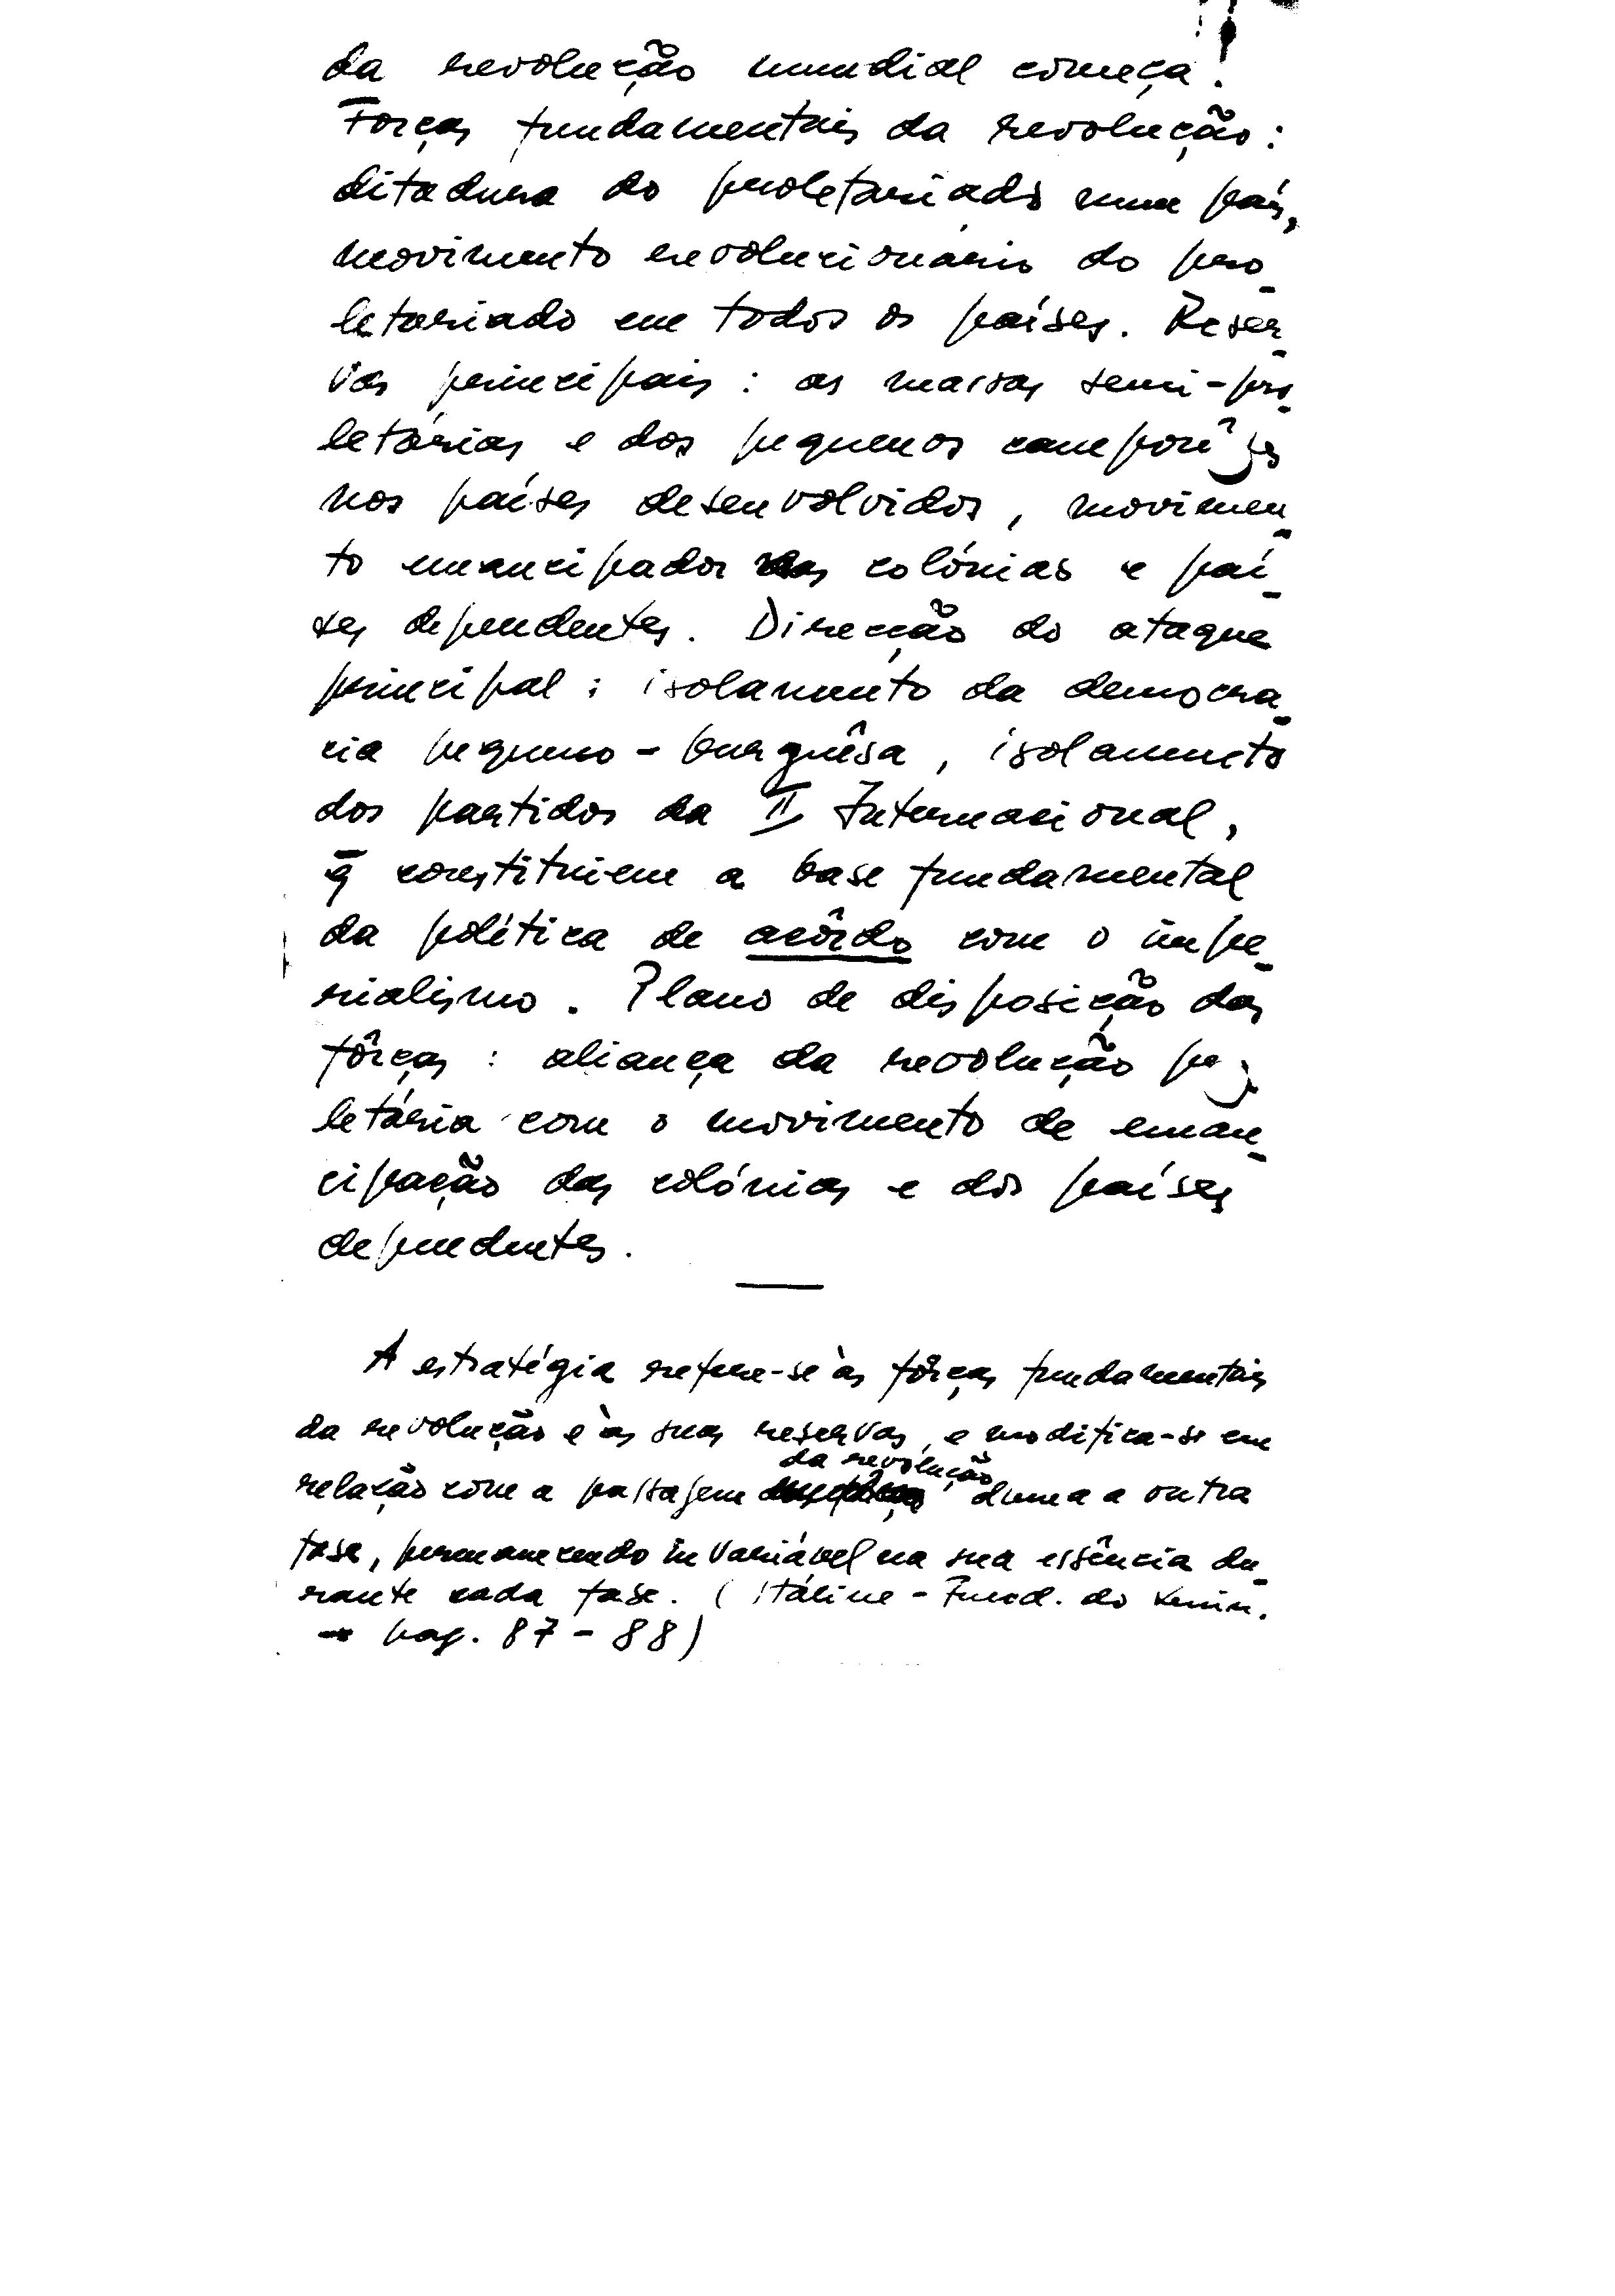 da revolução mundial começa!
Forças fundamentais da revolução:
ditadura do proletariado num país,
movimento revolucionário do pro-
letariado em todos os países. Reser-
vas principais: as massas semi-pro-
letárias e dos pequenos camponêses
nos países desenvolvidos, movimen-
to emancipador nas colónias e paí-
ses dependentes. Direcção do ataque
principal: isolamento da democra-
cia pequeno-burguêsa, isolamento
dos partidos da II Internacional,
q̄ constituem a base fundamental
da política de acôrdo com o impe-
rialismo. Plano de disposição das
fôrças: aliança da revolução pro-
letária com o movimento de eman-
cipação das colónias e dos países
dependentes.
A estratégia refere-se às fôrças fundamentais
da revolução e às suas reservas, e modifica-se em
relação com a passagem da revolução duma a outra
fase, permanecendo invariável na sua essência du-
rante cada fase. (Stáline - Fund. do Lenin.
pag. 87-88)